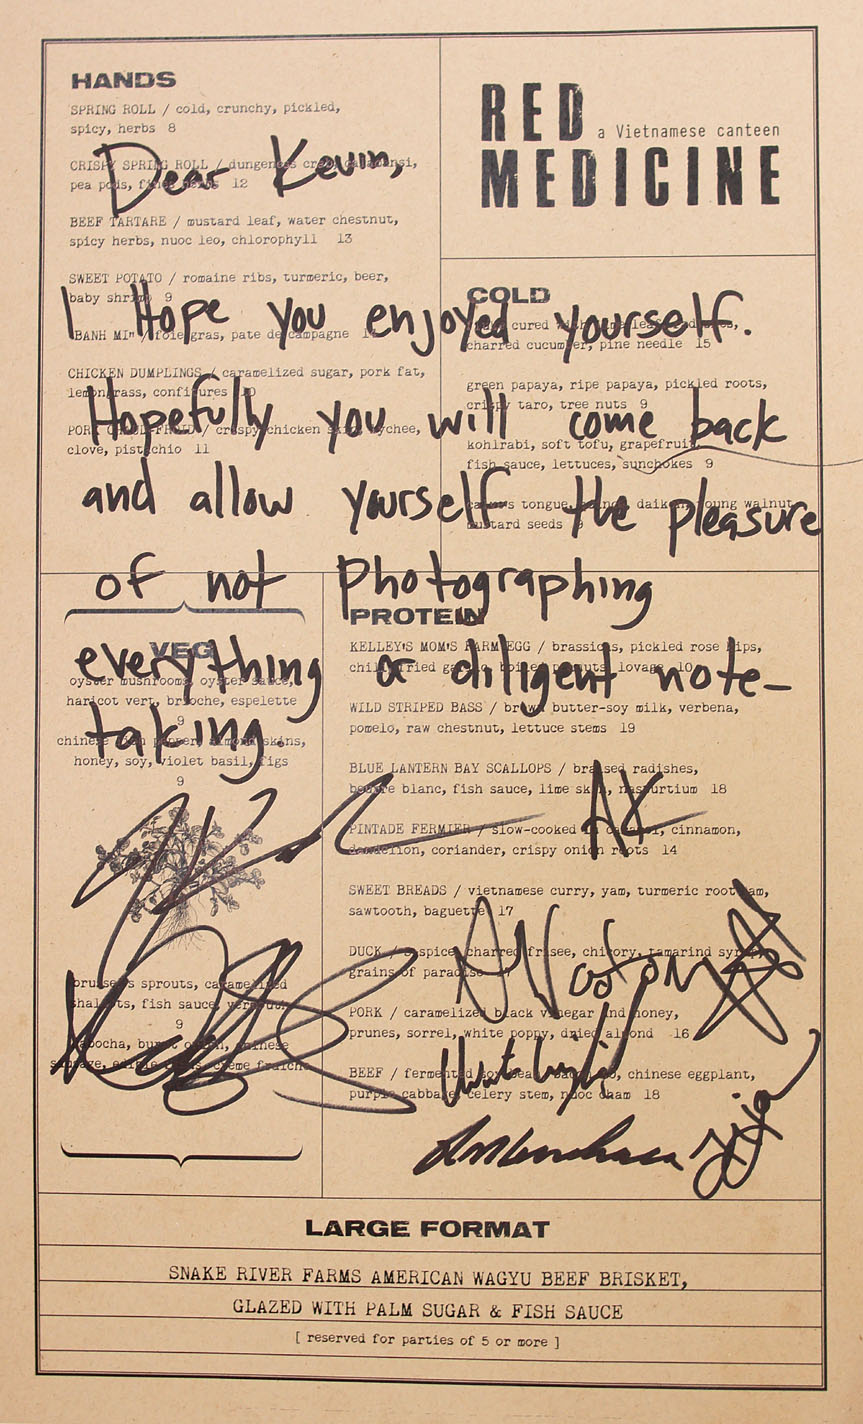 HANDS
SPRING ROLL / cold, crunchy, pickled,
spicy, herbs 8
CRISPY SPRING ROLL / dungeness
pea pods, fines 12
BEEF TARTARE / mustard leaf, water chestnut,
spicy herbs, nuoc leo, chlorophyll 13
SWEET POTATO / romaine ribs, turmeric, beer,
baby shrimp 9
"BANH MI" / foie gras, pate de campagne
CHICKEN DUMPLINGS / caramelized sugar, pork fat,
lemongrass, confitures 10
PORK CHAUD-FROID / crispy chicken skin, lychee,
clove, pistachio 11
RED
a Vietnamese canteen
MEDICINE
COLD
cured
charred cucumber, pine needle 15
green papaya, ripe papaya, pickled roots,
crispy taro, tree nuts 9
kohlrabi, soft tofu, grapefruit,
fish sauce, lettuces, sunchokes 9
tongue, daikon, young walnut,
mustard seeds 9
VEG
oyster mushrooms, oyster sauce,
haricot vert, brioche, espelette
9
chinese skins,
honey, soy, violet basil, figs
9
brussels sprouts, caramelized
shallots, fish sauce,
9
kabocha, burnt onion, chinese
sausage, creme fraiche
PROTEIN
KELLEY'S MOM'S FARM EGG / brassicas, pickled rose hips,
fried boiled peanuts, lovage 10
WILD STRIPED BASS / brown butter-soy milk, verbena,
pomelo, raw chestnut, lettuce stems 19
BLUE LANTERN BAY SCALLOPS / braised radishes,
beurre blanc, fish sauce, lime skin, nasturtium 18
PINTADE FERMIER / slow-cooked in caramel, cinnamon,
dandelion, coriander, crispy onion roots 14
SWEET BREADS / vietnamese curry, yam, turmeric root
sawtooth, baguette 17
DUCK / 5 spice, charred frisee, chicory, tamarind syrup,
grains of paradise
PORK / caramelized black vinegar and honey,
prunes, sorrel, white poppy, dried almond 16
BEEF / fermented chinese eggplant,
purple cabbage, celery stem, nuoc cham 18
LARGE FORMAT
SNAKE RIVER FARMS AMERICAN WAGYU BEEF BRISKET,
GLAZED WITH PALM SUGAR & FISH SAUCE
[ reserved for parties of 5 or more ]
Dear Kevin,
I Hope you enjoyed yourself.
Hopefully you will come back
and allow yourself the pleasure
of not photographing
everything or diligent note-
taking.
AK